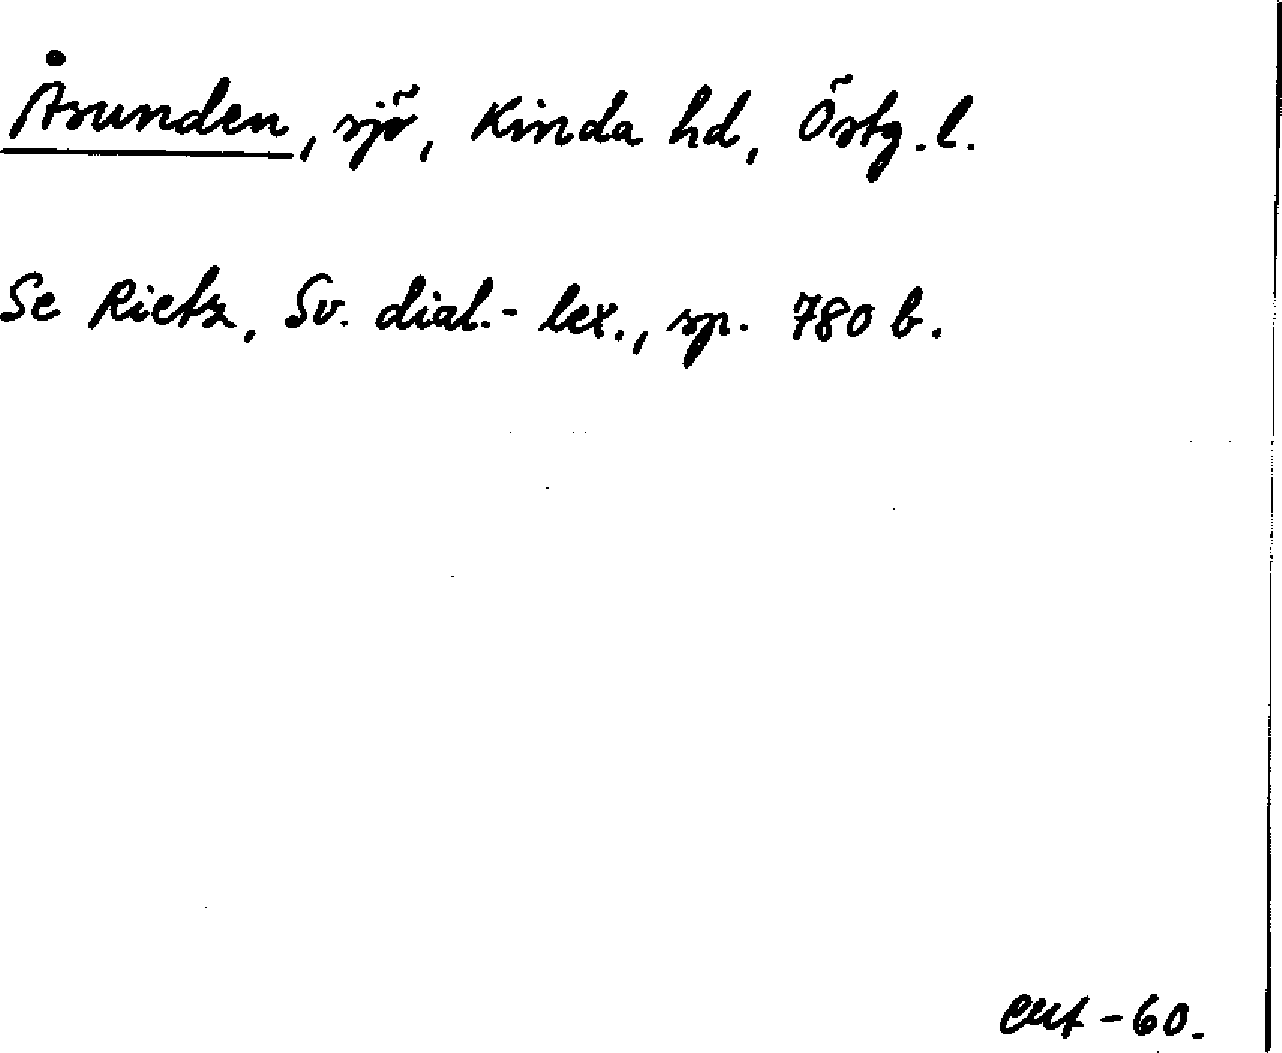 Åsunden, sjö, Kinda hd, Östg.l.
Se Rietz, Sv. dial.-lex., sp. 780 b.
-60.